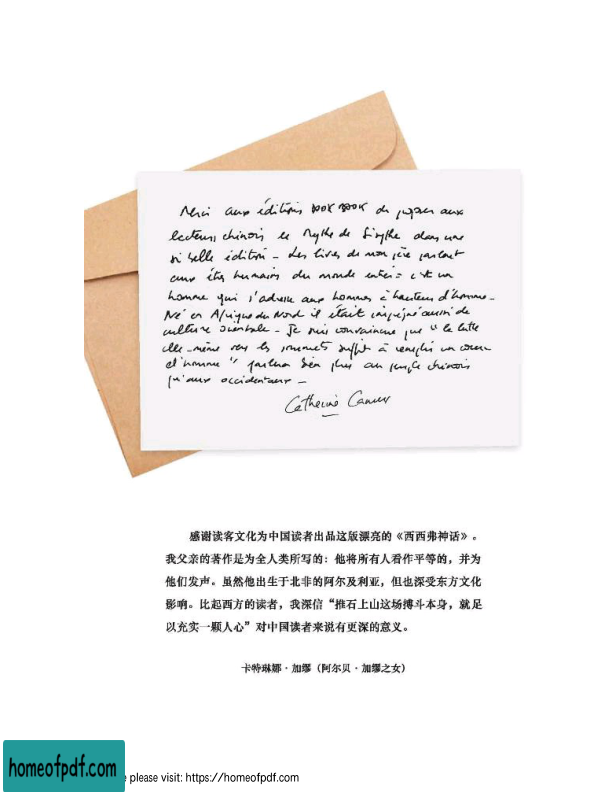 Merci aux éditions DOOK BOOK de proposer aux
lecteurs chinois le Mythe de Sisyphe dans une
si belle édition - Les livres de mon père parlent
aux êtres humains du monde entier : c'est un
homme qui s'adresse aux hommes à hauteur d'homme -
Né en Afrique du Nord il était imprégné aussi de
culture orientale - Je suis convaincue que "la lutte
elle-même vers les sommets suffit à remplir un cœur
d'homme" parlera bien plus au peuple chinois
qu'aux occidentaux -
Catherine Camus
感谢读客文化为中国读者出品这版漂亮的《西西弗神话》。
我父亲的著作是为全人类所写的：他将所有人看作平等的，并为
他们发声。虽然他出生于北非的阿尔及利亚，但也深受东方文化
影响。比起西方的读者，我深信“推石上山这场搏斗本身，就足
以充实一颗人心”对中国读者来说有更深的意义。
卡特琳娜·加缪（阿尔贝·加缪之女）
homeofpdf.com
please visit: https://homeofpdf.com